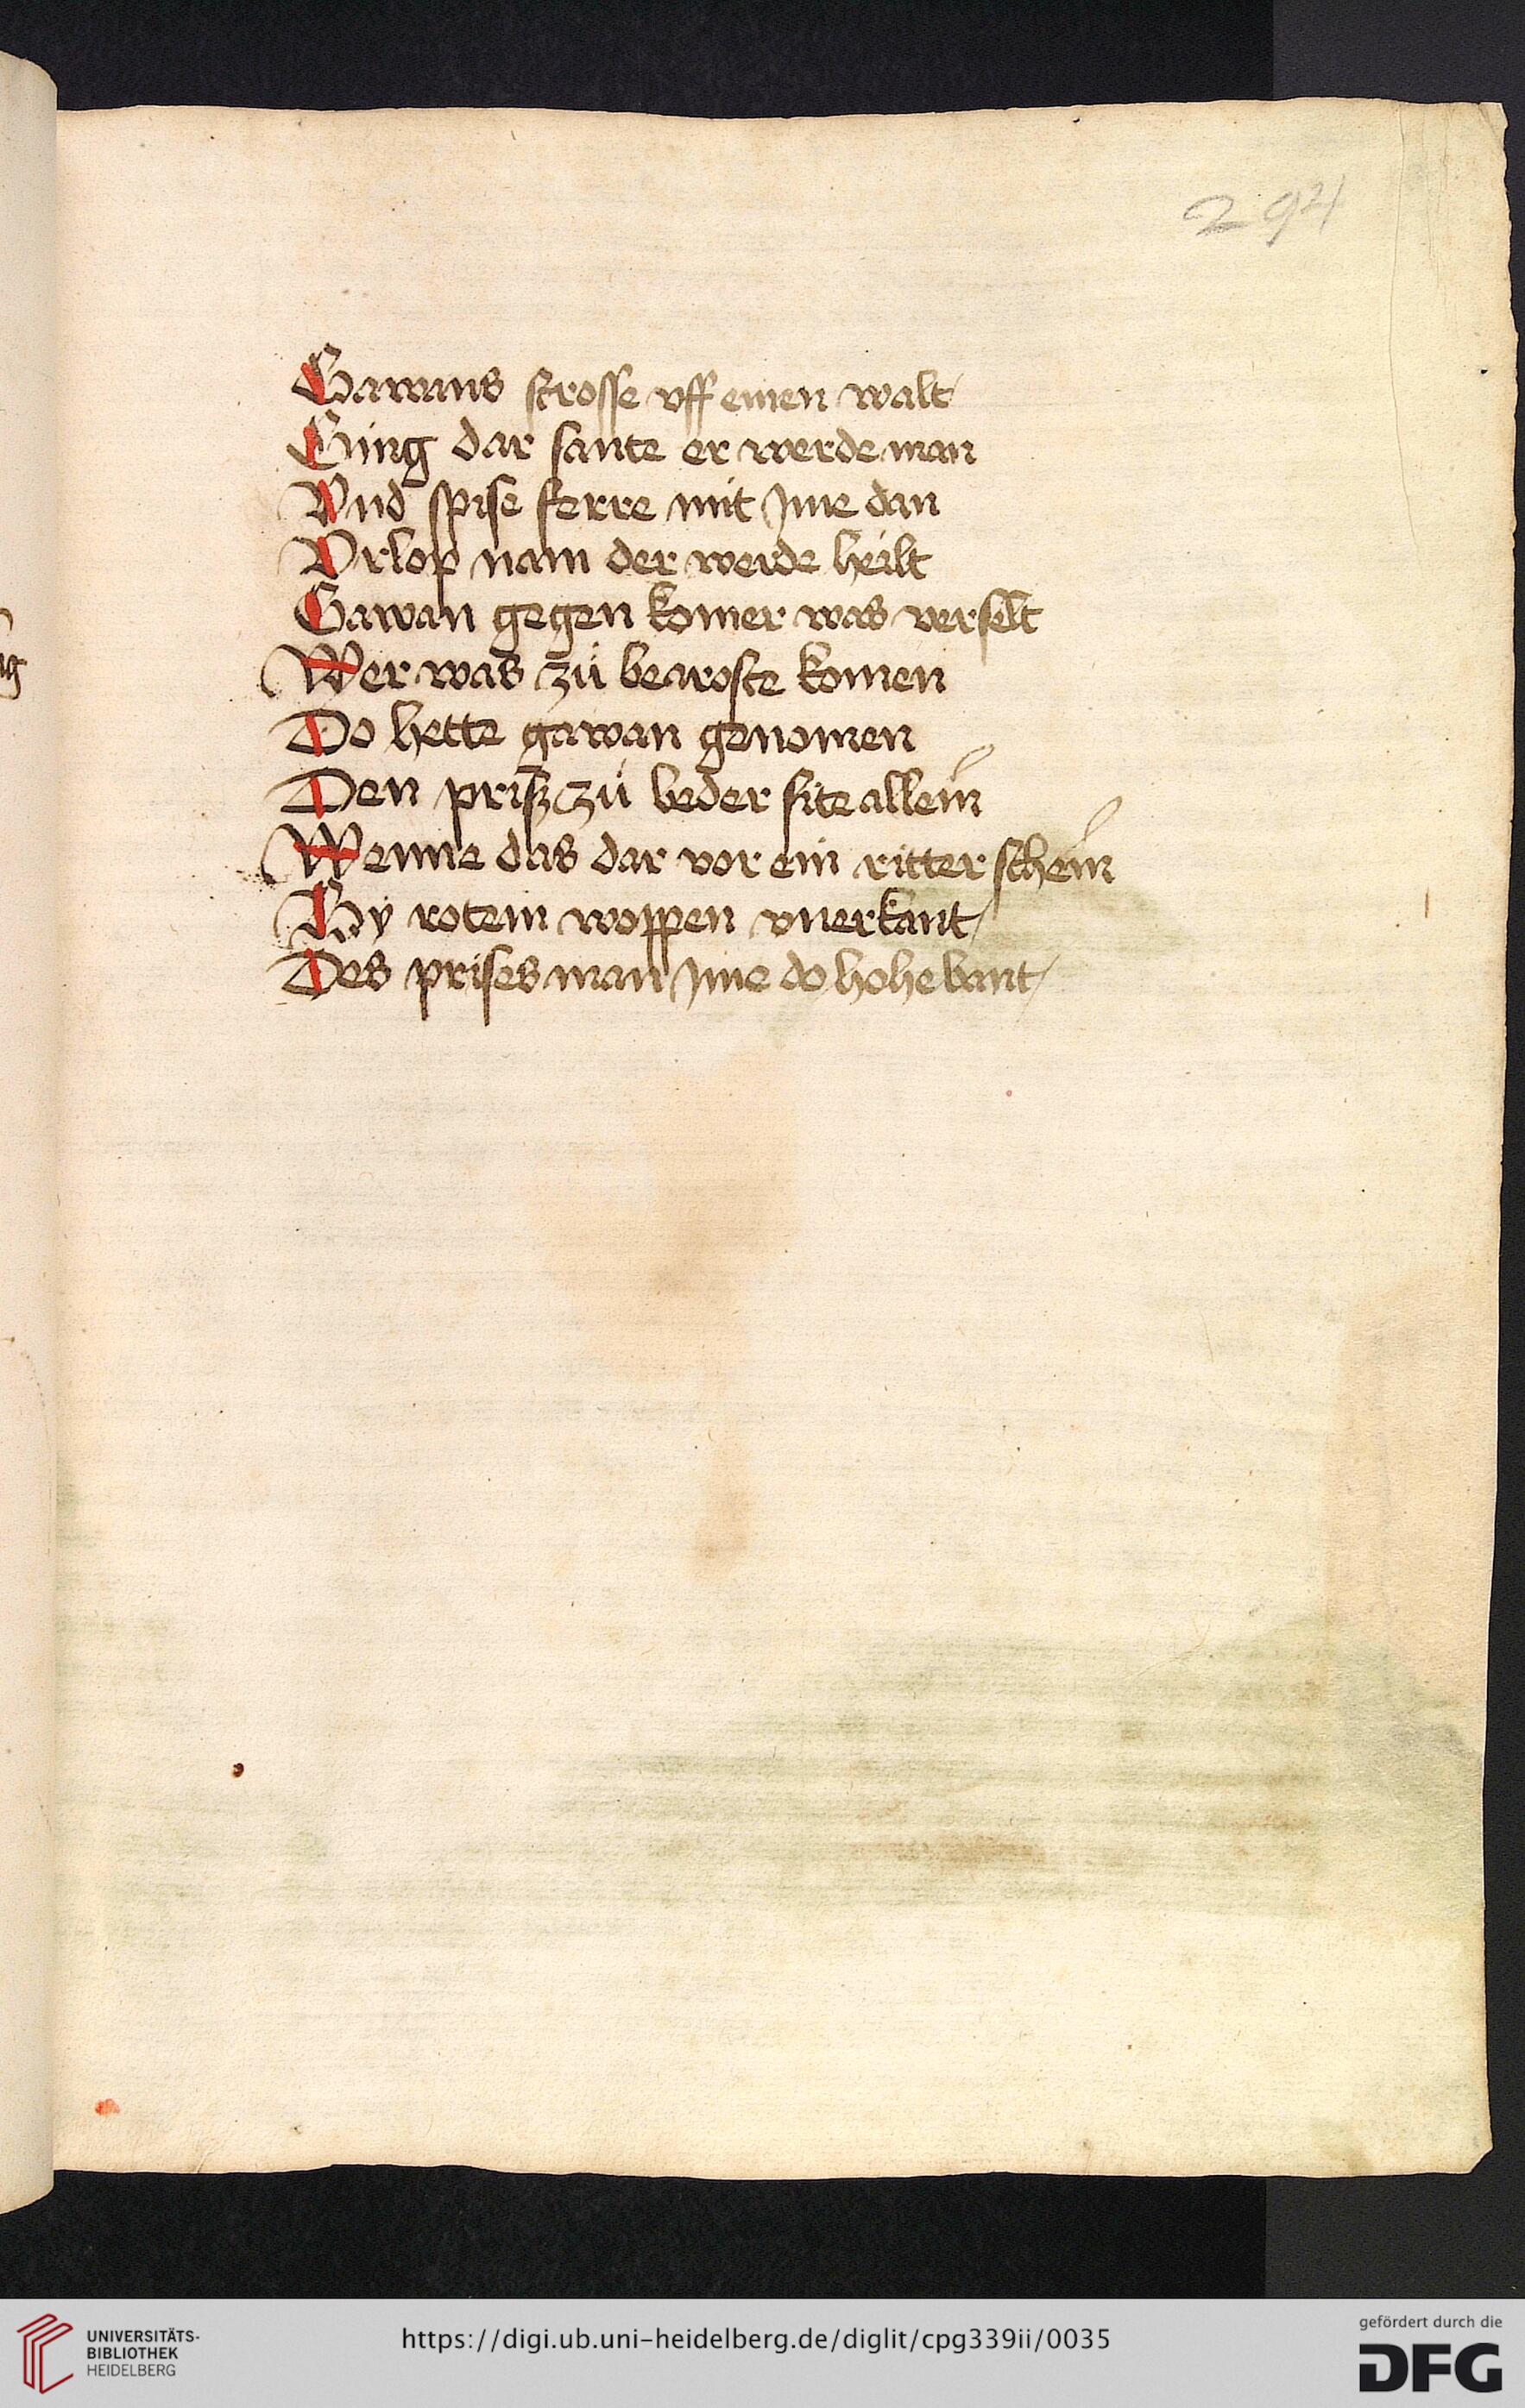 294
Gawans strosse vff einen walt
Ging dar sante er werde man
Vnd spise ferre mit Jme dan
Vrlop nam der werde heilt
Gawan gegen komer was verselt
Wer was zü bearoste komen
Do hette gawan genomen
Den prisz zü beder site allein
Wenne das dar vor ein ritter schein
By rotem woppen vnerkant
Des prises man Jme do hohe bant
UNIVERSITÄTS-
BIBLIOTHEK
HEIDELBERG
https://digi.ub.uni-heidelberg.de/diglit/cpg339ii/0035
gefördert durch die
DFG